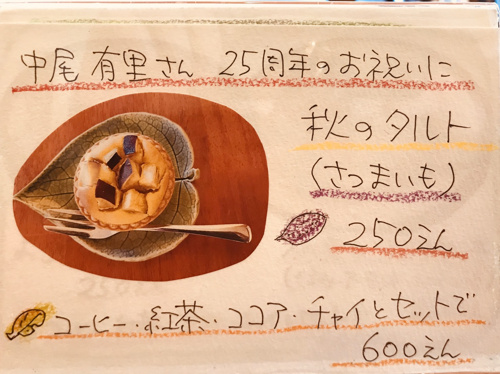 中尾有里さん 25周年のお祝いに
秋のタルト
(さつまいも)
250えん
コーヒー・紅茶・ココア・チャイとセットで
600えん